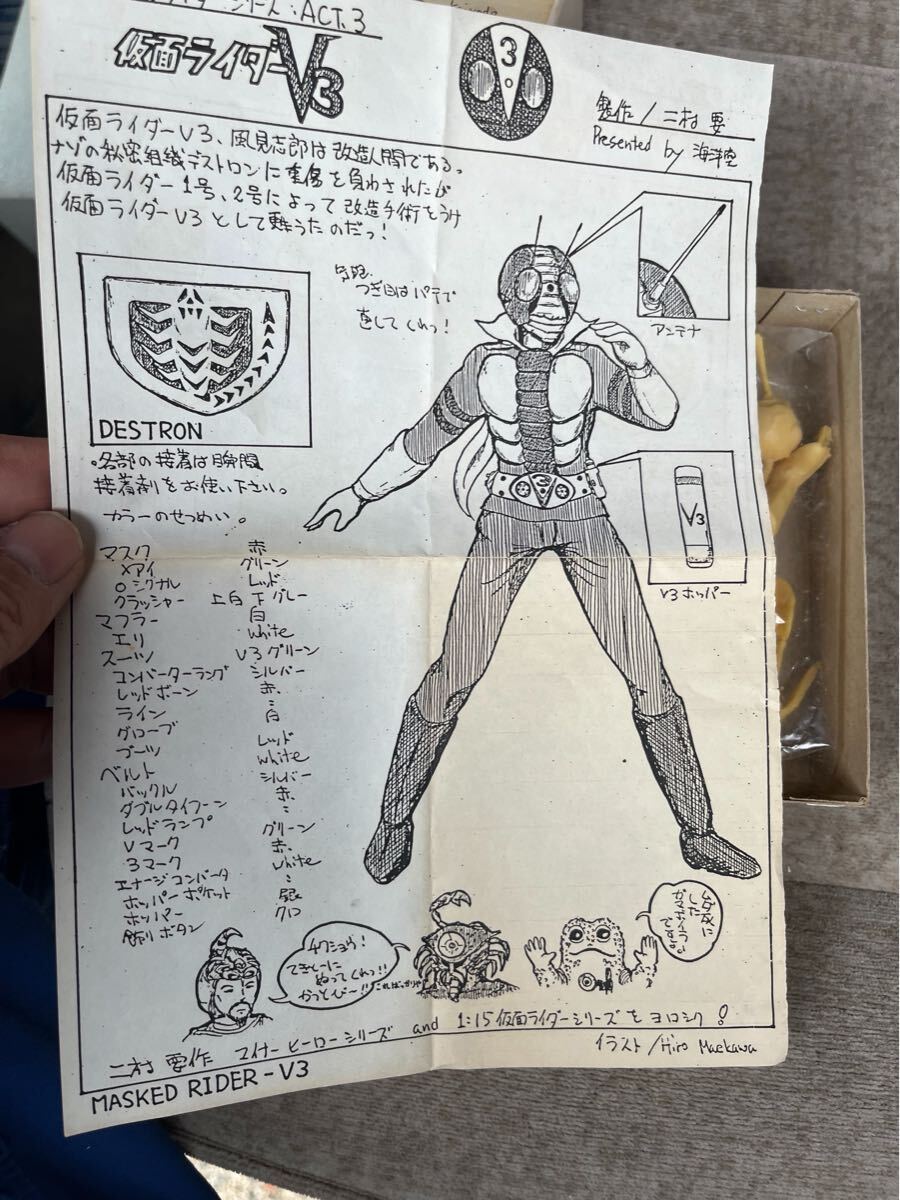 シリーズ:ACT.3
仮面ライダーV3
3
製作/二村 要
Presented by 海洋堂
仮面ライダーV3、風見志郎は改造人間である。
ナゾの秘密組織デストロンに重傷を負わされたが
仮面ライダー1号、2号によって改造手術をうけ
仮面ライダーV3として甦うたのだっ!
つぎ目はパテで
をしてくれっ!
アンテナ
DESTRON
・各部の接着は瞬間
接着剤をお使い下さい。
カラーのせつめい。
V3
V3ホッパー
マスク 赤
×アイ グリーン
○シグナル レッド
クラッシャー 上白下グレー
マフラー 白
エリ White
スーツ V3グリーン
コンバーターラング シルバー
レッドボーン 赤、
ライン 〃
グローブ 白
ブーツ レッド
ベルト White
バックル シルバー
ダブルタイフーン 赤、
レッドランプ 〃
Vマーク グリーン
3マーク 赤、
エナージコンバータ White
ホッパーポケット 〃
ホッパー 銀
飾りボタン クロ
てきとーに
ぬってくれっ!!
かっとびー!!
こればっかりや
した
ガマボイラー
です。
二村 要作 マイナーヒーローシリーズ and 1:15仮面ライダーシリーズをヨロシク!
イラスト/Hiro Maekawa
MASKED RIDER-V3